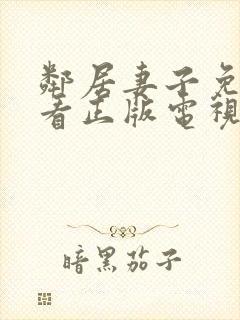 鄰居妻子免
看正版電視
暗黑茄子